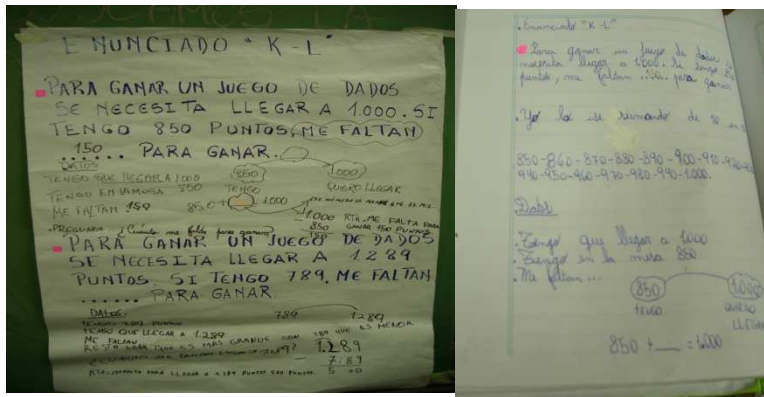 ENUNCIADO "K-L"
PARA GANAR UN JUEGO DE DADOS
SE NECESITA LLEGAR A 1.000. SI
TENGO 850 PUNTOS, ME FALTAN
150
...... PARA GANAR.
DATOS
TENGO QUE LLEGAR A 1000
TENGO EN LA MESA 850
ME FALTAN 150
850
TENGO
1000
QUIERO LLEGAR
850 + 1.000
1.000 RTA: ME FALTA PARA
- 850 GANAR 150 PUNTOS
150
PREGUNTA ¿Cuánto me falta para ganar?
PARA GANAR UN JUEGO DE DADOS
SE NECESITA LLEGAR A 1289
PUNTOS. SI TENGO 789, ME FALTAN
...... PARA GANAR.
DATOS:
789 1289
TENGO 789
TENGO QUE LLEGAR A 1.289
ME FALTAN
1.289
- 789
Enunciado "K-L"
Para ganar un juego de dados se
necesita llegar a 1.000. Si tengo 850
puntos, me faltan 150 para ganar
Yo lo se sumando de 10 en
850-860-870-880-890-900-910-920-930
940-950-960-970-980-990-1.000.
Datos
Tengo que llegar a 1000
Tengo en la mesa 850
Me faltan...
850
TENGO
1.000
QUIERO
LLEGAR
850 + __ = 1.000